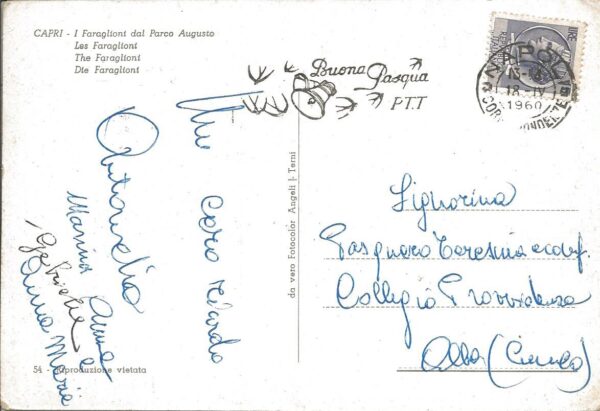 CAPRI - I Faraglioni dal Parco Augusto
Les Faraglioni
The Faraglioni
Die Faraglioni
Buona Pasqua
P.T.T
NAPOLI
18 IV
1960
CORRISPONDENZE
Un caro ricordo
Antonella
Marisa Anna
Gabriella e
Anna Maria
da vero Fotocolor Angeli - Terni
Signorina
Pasquero Teresina ecduf.
Collegio Provvidenza
Alba (Cuneo)
54 - Riproduzione vietata